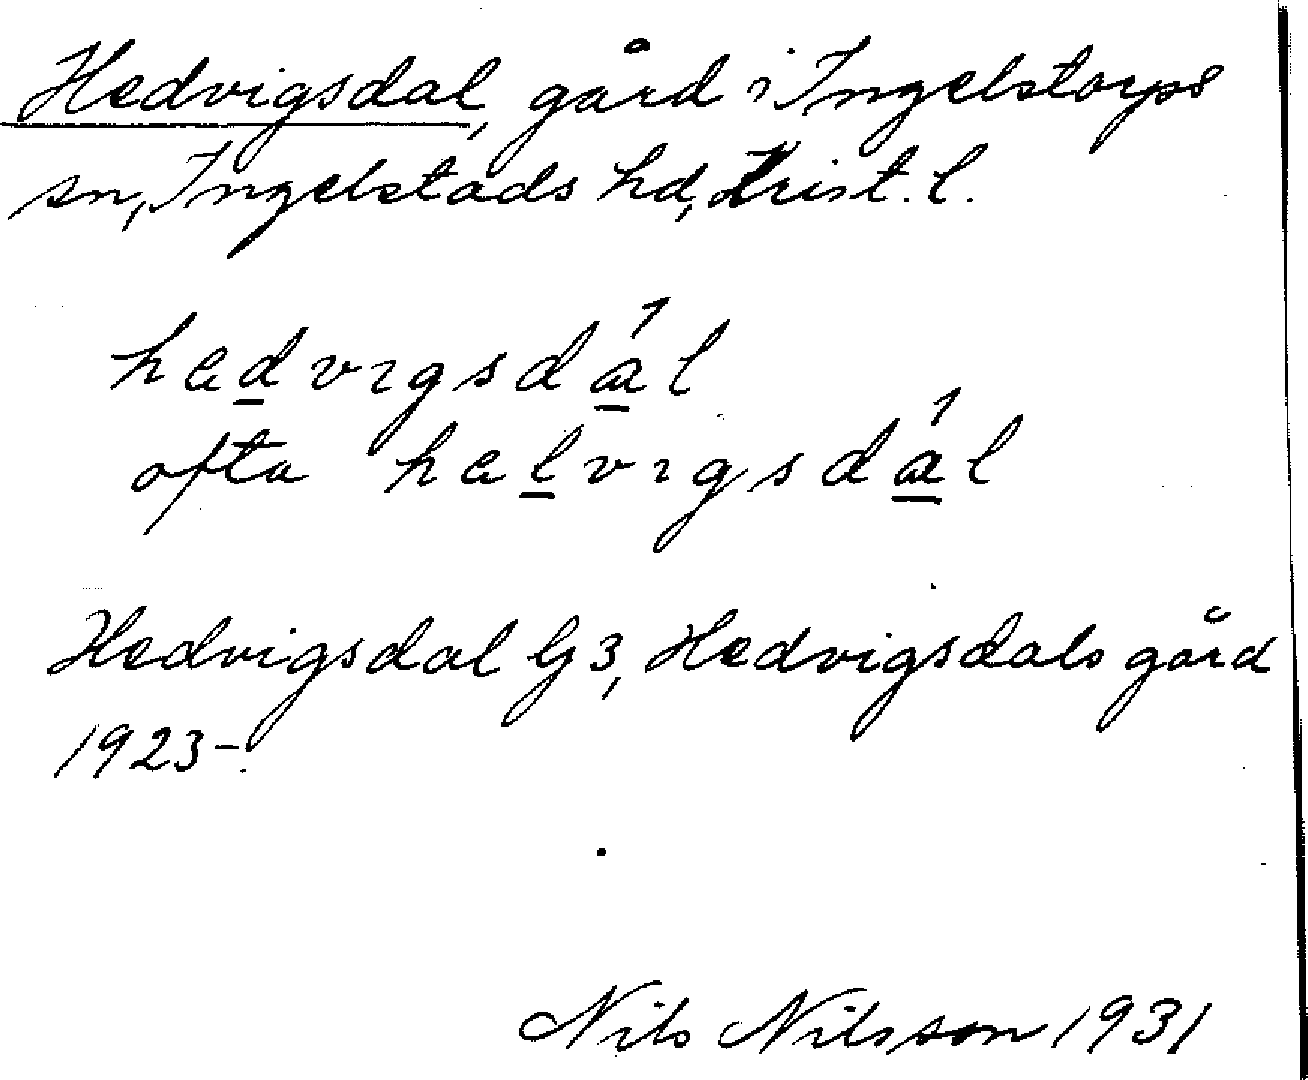 Hedvigsdal, gård i Ingelstorps
sn, Ingelstads hd, Krist. l.
hedvɩgsdɑ́l
ofta helvɩgsdɑ́l
Hedvigsdal G3, Hedvigsdals gård
1923-.
Nils Nilsson 1931